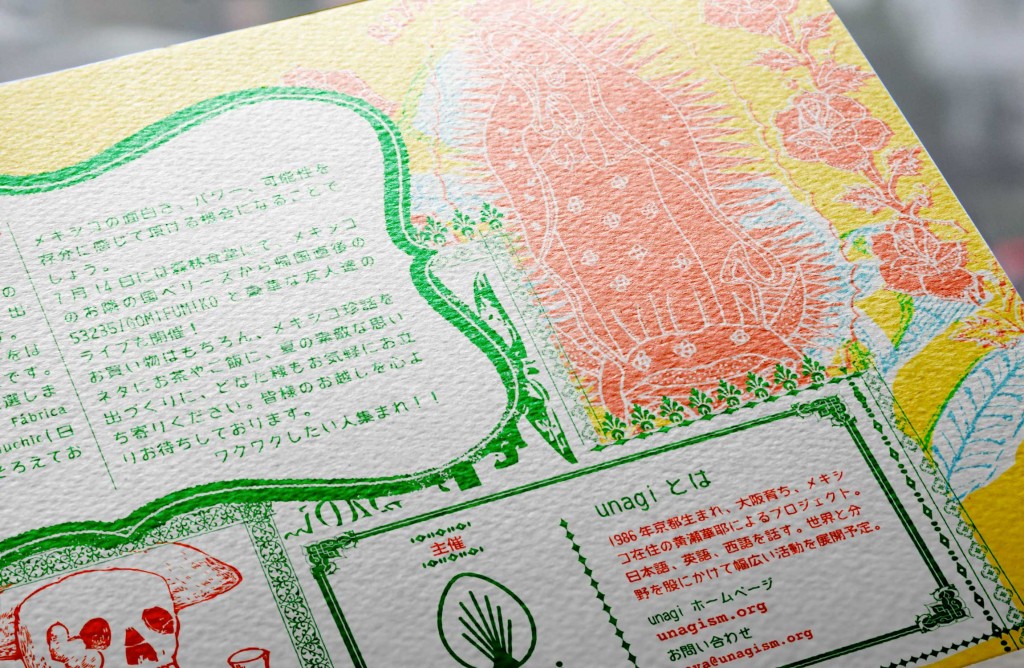 の
出
。
をは
です。
選しま
Fábrica
uchic(日
そろえてお
メキシコの面白さ、パワー、可能性を
存分に感じて頂ける機会になることで
しょう。
7月14日には森林食堂にて メキシコ
のお隣の国ベリーズから帰国直後の
53235/GOMIFUMIKOと豪華な友人達の
ライブも開催!
お買い物はもちろん、メキシコ珍話を
ネタにお茶や、ご飯に、夏の素敵な思い
出づくりに、どなた様もお気軽にお立
ち寄りください。皆様のお越しを心よ
りお待ちしております。
ワクワクしたい人集まれ!!
主催
unagiとは
1986年京都生まれ、大阪育ち、メキシ
コ在住の黄瀬華耶によるプロジェクト。
日本語、英語、西語を話す。世界と分
野を股にかけて幅広い活動を展開予定。
unagi ホームページ
unagism.org
お問い合わせ
aya@unagism.org